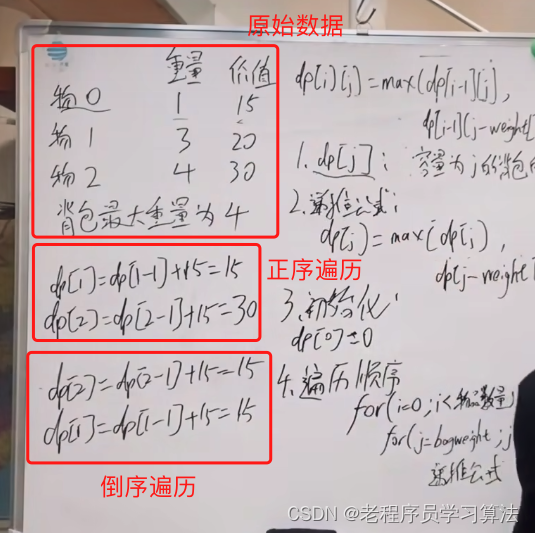 原始数据
重量 价值
物0 1 15
物1 3 20
物2 4 30
背包最大重量为4
正序遍历
dp[1]=dp[1-1]+15=15
dp[2]=dp[2-1]+15=30
dp[2]=dp[2-1]+15=15
dp[1]=dp[1-1]+15=15
倒序遍历
dp[i][j]=max(dp[i-1][j],
dp[i-1][j-weight[
1. dp[j]: 容量为j的背包
2. 递推公式:
dp[j]=max(dp[j],
dp[j-weight[
3. 初始化:
dp[0]=0
4. 遍历顺序
for(i=0;i<物品数量;
for(j=bagweight;j
递推公式
CSDN @老程序员学习算法